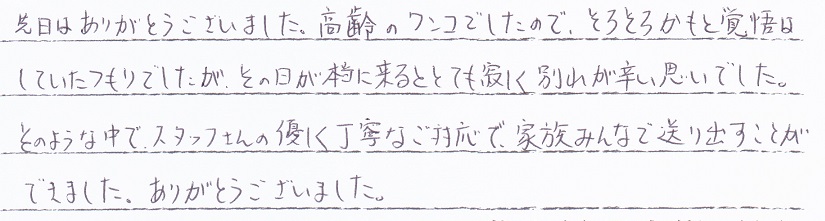 先日はありがとうございました。高齢のワンコでしたので、そろそろかもと覚悟は
していたつもりでしたが、その日が本当に来るととても寂しく別れが辛い思いでした。
そのような中で、スタッフさんの優しく丁寧なご対応で、家族みんなで送り出すことが
できました。ありがとうございました。